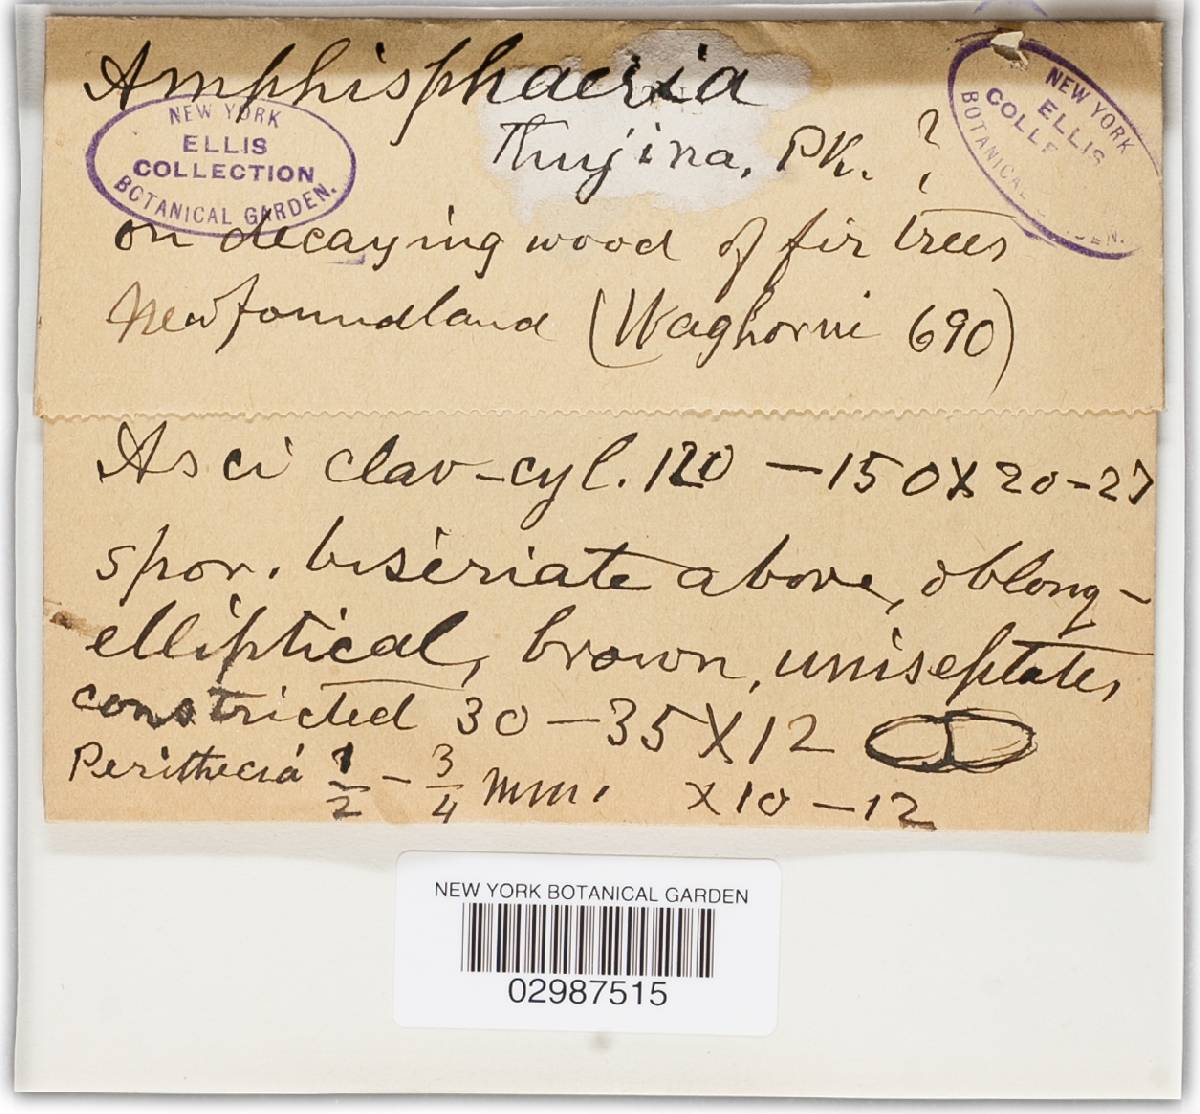 Amphisphaeria
Thujina, Pk. ?
NEW YORK
ELLIS
COLLECTION
BOTANICAL GARDEN.
NEW YORK
ELLIS
COLLE
BOTANICAL GARDEN.
on decaying wood of fir trees
Newfoundland (Waghorne 690)
Asci clav-cyl. 120 – 150 X 20-27
spor. biseriate above, oblong-
elliptical, brown, uniseptate,
constricted 30 – 35 X 12
Perithecia 1/2 – 3/4 mm. x 10 – 12
NEW YORK BOTANICAL GARDEN
02987515